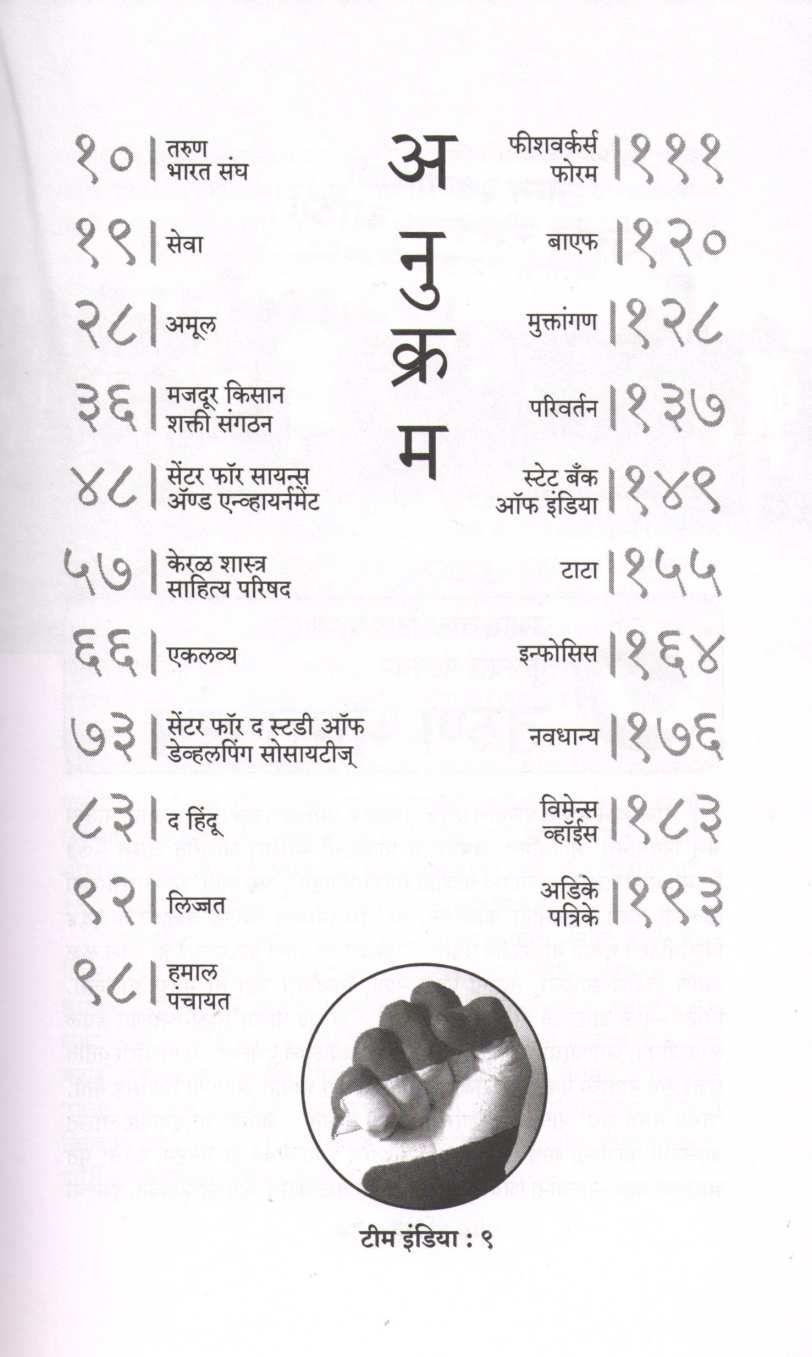 अ
नु
क्र
म
१० | तरुण
भारत संघ
१९ | सेवा
२८ | अमूल
३६ | मजदूर किसान
शक्ती संगठन
४८ | सेंटर फॉर सायन्स
ॲण्ड एन्व्हायर्नमेंट
५७ | केरळ शास्त्र
साहित्य परिषद
६६ | एकलव्य
७३ | सेंटर फॉर द स्टडी ऑफ
डेव्हलपिंग सोसायटीज्
८३ | द हिंदू
९२ | लिज्जत
९८ | हमाल
पंचायत
फीशवर्कर्स
फोरम | १११
बाएफ | १२०
मुक्तांगण | १२८
परिवर्तन | १३७
स्टेट बँक
ऑफ इंडिया | १४९
टाटा | १५५
इन्फोसिस | १६४
नवधान्य | १७६
विमेन्स
व्हॉईस | १८३
अडिके
पत्रिके | १९३
टीम इंडिया : ९